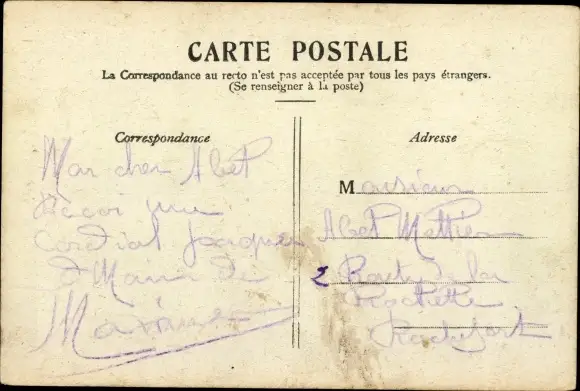 CARTE POSTALE
La Correspondance au recto n'est pas acceptée par tous les pays étrangers.
(Se renseigner à la poste)
Correspondance
Mon cher Abel
une
Cordial
de
Adresse
Monsieur
Abel
2 Route de la
Rochette
Rochefort